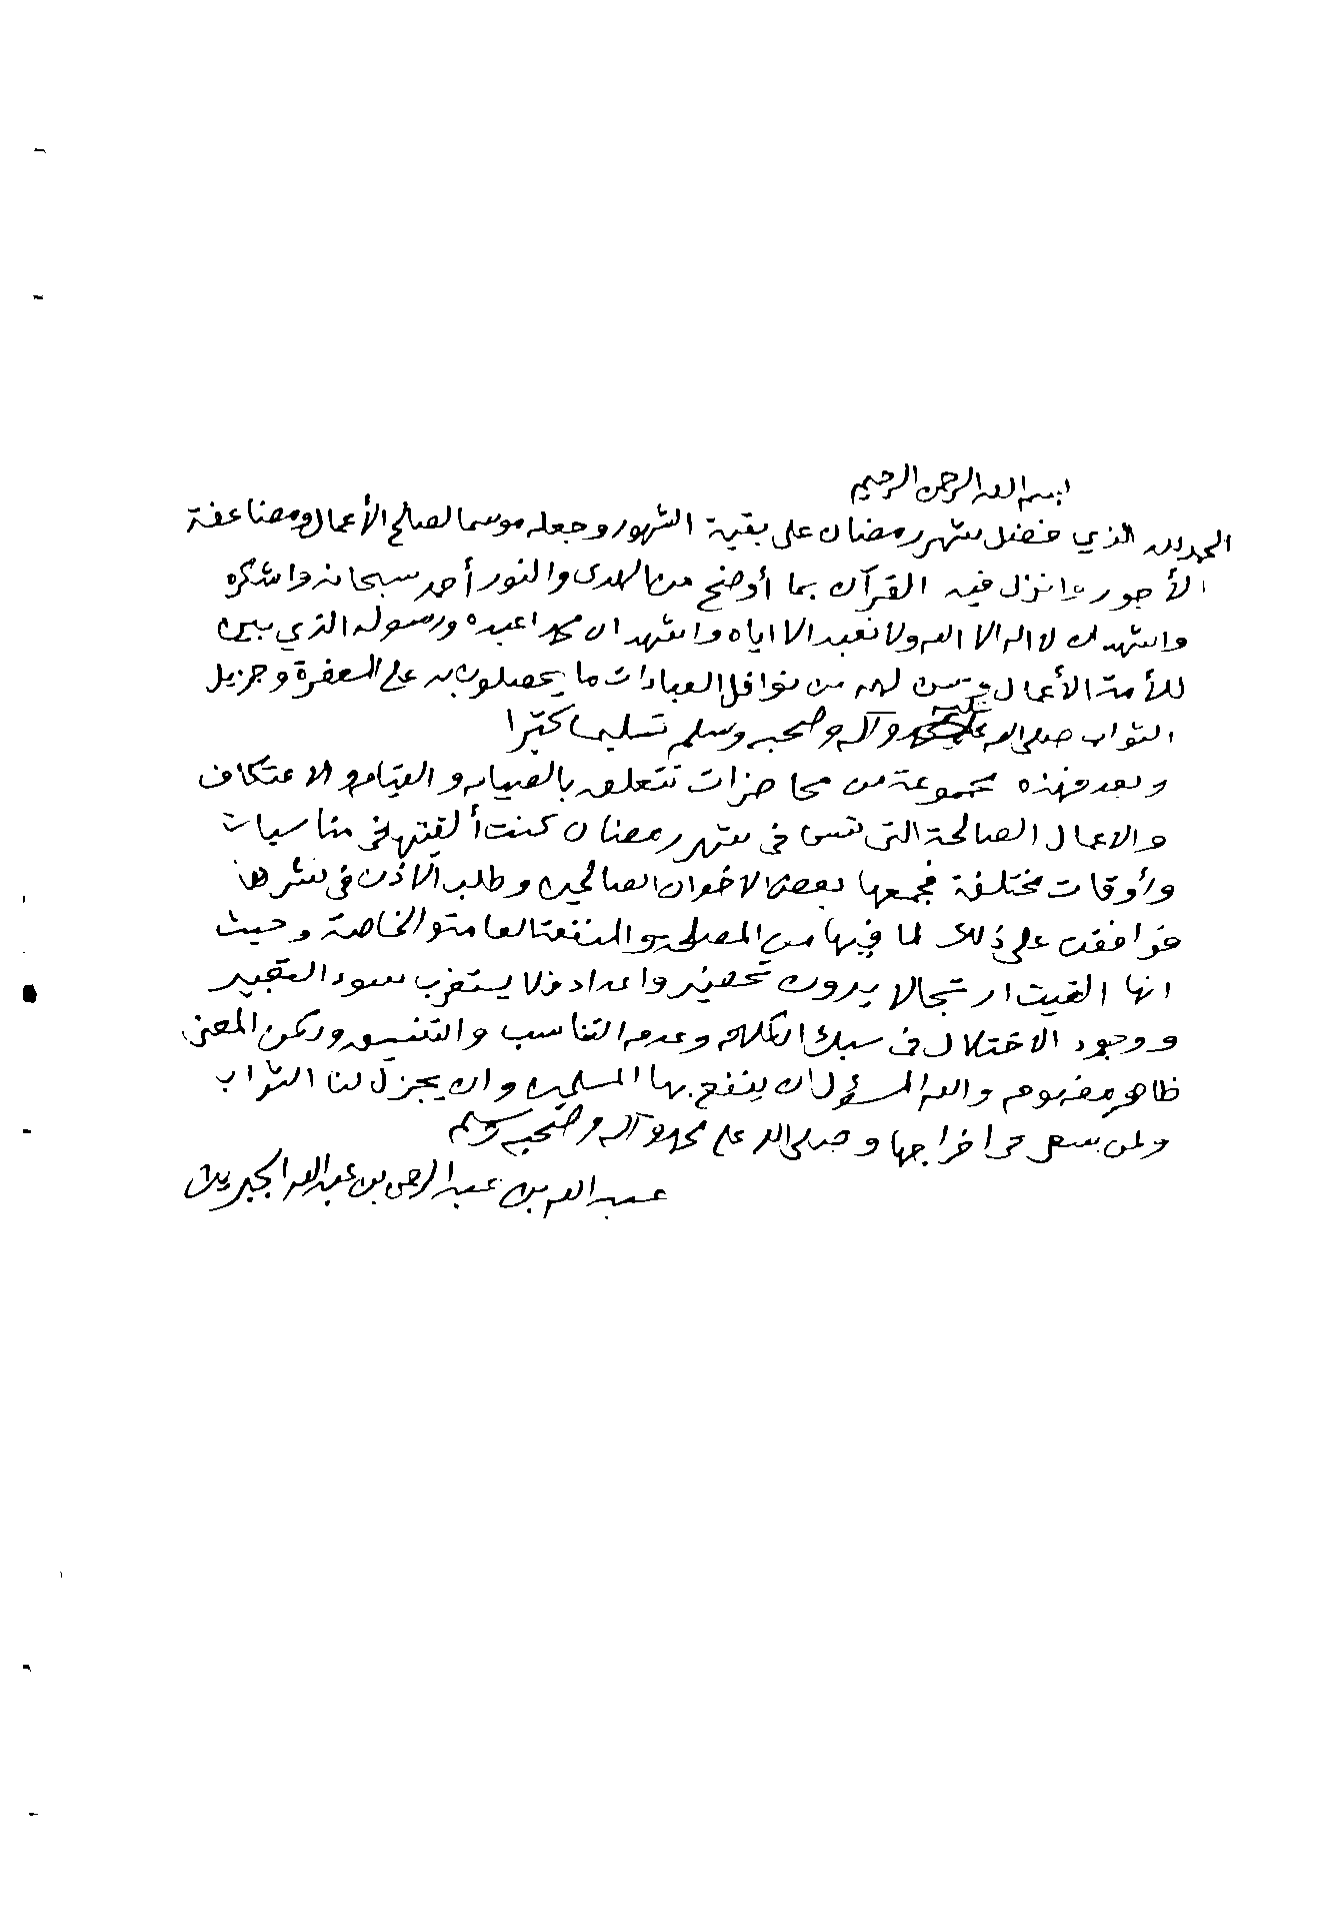 بسم الله الرحمن الرحيم
الحمد لله الذي فضل شهر رمضان على بقية الشهور وجعله موسما لصالح الأعمال ومضاعفة
الأجور وانزل فيه القرآن بما أوضح من الهدى والنور أحمده سبحانه واشكره
واشهد ان لا اله الا الله ولا نعبد الا اياه واشهد ان محمدا عبده ورسوله الذي بين
للأمة الأعمال وسن لهم من نوافل العبادات ما يحصلون به على المغفرة وجزيل
الثواب صلى الله عليه وآله وصحبه وسلم تسليما كثيرا
وبعد فهذه مجموعة من محاضرات تتعلق بالصيام والقيام والاعتكاف
والاعمال الصالحة التي تسن في شهر رمضان كنت ألقيتها في مناسبات
وأوقات مختلفة فجمعها بعض الاخوان الصالحين وطلب الاذن في نشرها
فوافقت على ذلك لما فيها من المصلحة والمنفعة العامة والخاصة وحيث
انها القيت ارتجالا بدون تحضير واعداد فلا يستغرب سوء التعبير
ووجود الاختلال في سبك الكلام وعدم التناسب والتنسيق ولكن المعنى
ظاهر مفهوم والله المسؤول ان ينفع بها المسلمين وان يجزل لنا الثواب
ولمن سعى في اخراجها وصلى الله على محمد وآله وصحبه وسلم
عبد الله بن عبد الرحمن بن عبد الله الجبرين